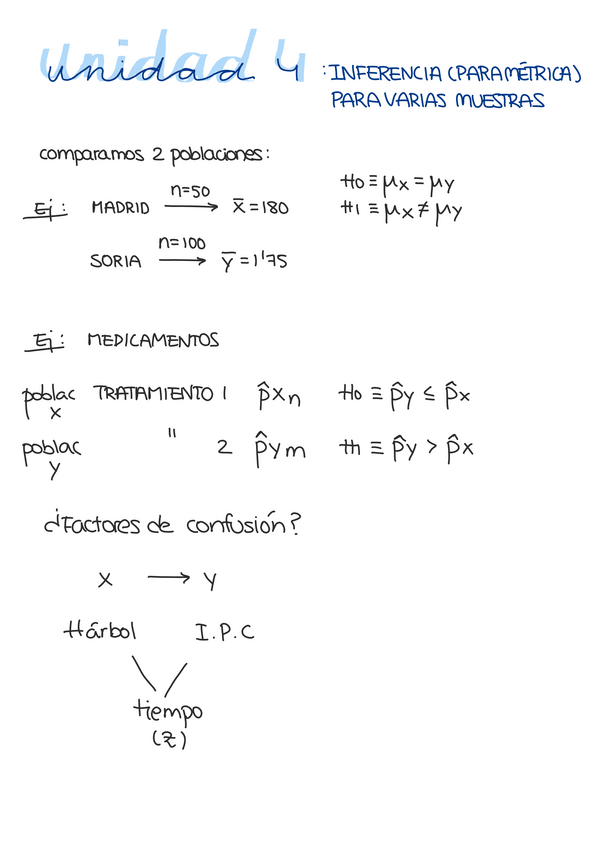 unidad 4 : INFERENCIA (PARAMÉTRICA)
PARA VARIAS MUESTRAS
comparamos 2 poblaciones:
Ej: MADRID n=50 → x̄ = 180 H0 ≡ μx = μy
H1 ≡ μx ≠ μy
SORIA n=100 → ȳ = 1'75
Ej: MEDICAMENTOS
poblac x TRATAMIENTO 1 p̂xn H0 ≡ p̂y ≤ p̂x
poblac y " 2 p̂ym H1 ≡ p̂y > p̂x
¿Factores de confusión?
X → Y
Hárbol I.P.C
tiempo
(z)